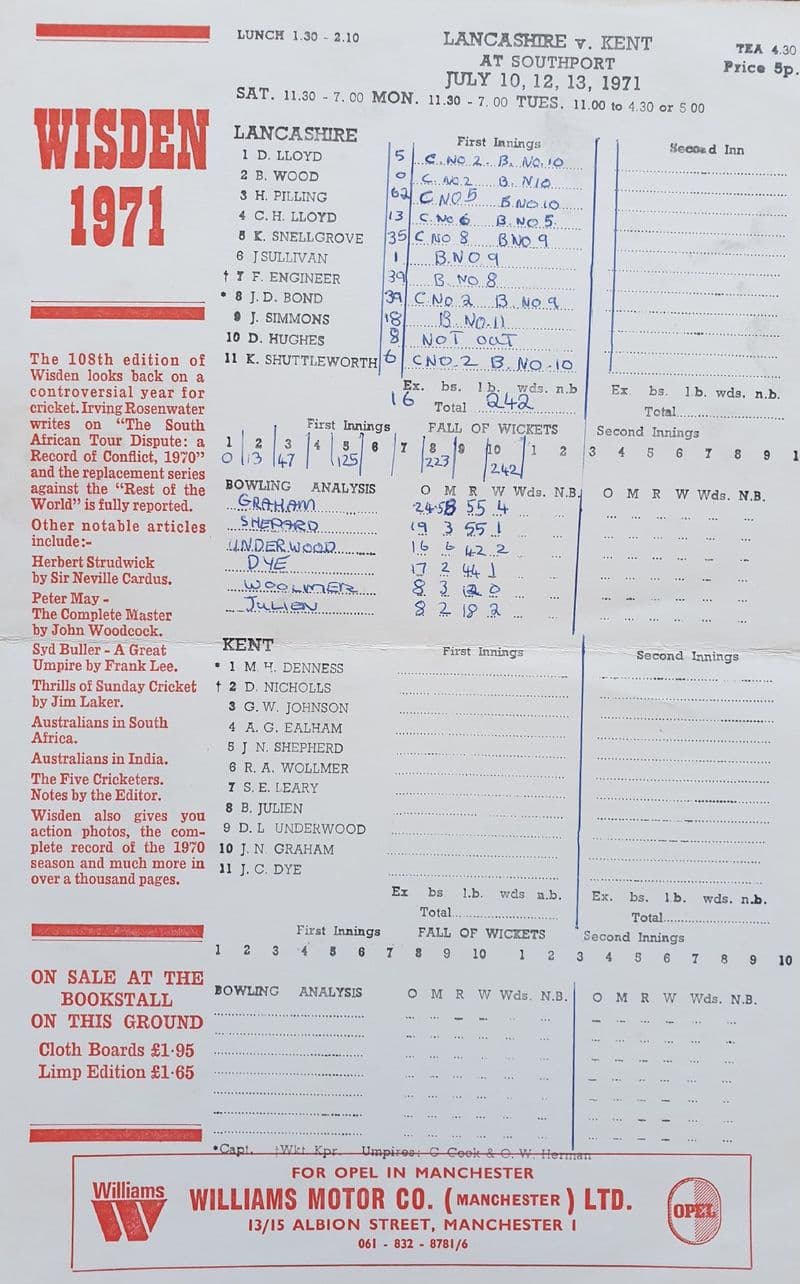 LUNCH 1.30 - 2.10
LANCASHIRE v. KENT
AT SOUTHPORT
JULY 10, 12, 13, 1971
TEA 4.30
Price 5p.
SAT. 11.30 - 7.00 MON. 11.30 - 7.00 TUES. 11.00 to 4.30 or 5 00
WISDEN
1971
The 108th edition of
Wisden looks back on a
controversial year for
cricket. Irving Rosenwater
writes on "The South
African Tour Dispute: a
Record of Conflict, 1970"
and the replacement series
against the "Rest of the
World" is fully reported.
Other notable articles
include:-
Herbert Strudwick
by Sir Neville Cardus.
Peter May -
The Complete Master
by John Woodcock.
Syd Buller - A Great
Umpire by Frank Lee.
Thrills of Sunday Cricket
by Jim Laker.
Australians in South
Africa.
Australians in India.
The Five Cricketers.
Notes by the Editor.
Wisden also gives you
action photos, the com-
plete record of the 1970
season and much more in
over a thousand pages.
ON SALE AT THE
BOOKSTALL
ON THIS GROUND
Cloth Boards £1·95
Limp Edition £1·65
LANCASHIRE First Innings Second Inn
1 D. LLOYD 5 C. NO. 2. B. NO. 10
2 B. WOOD 0 C. NO. 2 B. N10
3 H. PILLING 62 C NO 5 B NO 10
4 C. H. LLOYD 13 C. NO 6 B. NO 5.
5 K. SNELLGROVE 35 C NO 8 B NO 9
6 J SULLIVAN 1 B. NO 9
† 7 F. ENGINEER 39 B. NO. 8
* 8 J. D. BOND 39 C. NO. 2 B. NO. 9
9 J. SIMMONS 18 B. NO. 11
10 D. HUGHES 8 NOT OUT
11 K. SHUTTLEWORTH 6 C NO. 2 B. NO. 10
Ex. bs. l b. wds. n.b Ex. bs. l.b. wds. n.b.
16 Total 242 Total
First Innings FALL OF WICKETS Second Innings
1 2 3 4 5 6 7 8 9 10 1 2 3 4 5 6 7 8 9 1
0 13 47 125 223 242
BOWLING ANALYSIS O M R W Wds. N.B. O M R W Wds. N.B.
GRAHAM 24·5 8 55 4
SHEPARD 19 3 55 1
UNDERWOOD 16 6 42 2
DYE 17 2 44 1
WOOLMER 8 3 12 0
JULIEN 8 2 18 2
KENT First Innings Second Innings
* 1 M. H. DENNESS
† 2 D. NICHOLLS
3 G. W. JOHNSON
4 A. G. EALHAM
5 J N. SHEPHERD
6 R. A. WOLLMER
7 S. E. LEARY
8 B. JULIEN
9 D. L UNDERWOOD
10 J. N. GRAHAM
11 J. C. DYE
Ex bs l.b. wds n.b. Ex. bs. l.b. wds. n.b.
Total Total
First Innings FALL OF WICKETS Second Innings
1 2 3 4 5 6 7 8 9 10 1 2 3 4 5 6 7 8 9 10
BOWLING ANALYSIS O M R W Wds. N.B. O M R W Wds. N.B.
*Capt. †Wkt Kpr. Umpires: C Cook & O. W. Herman
FOR OPEL IN MANCHESTER
Williams
WILLIAMS MOTOR CO. (MANCHESTER) LTD.
OPEL
13/15 ALBION STREET, MANCHESTER 1
061 - 832 - 8781/6